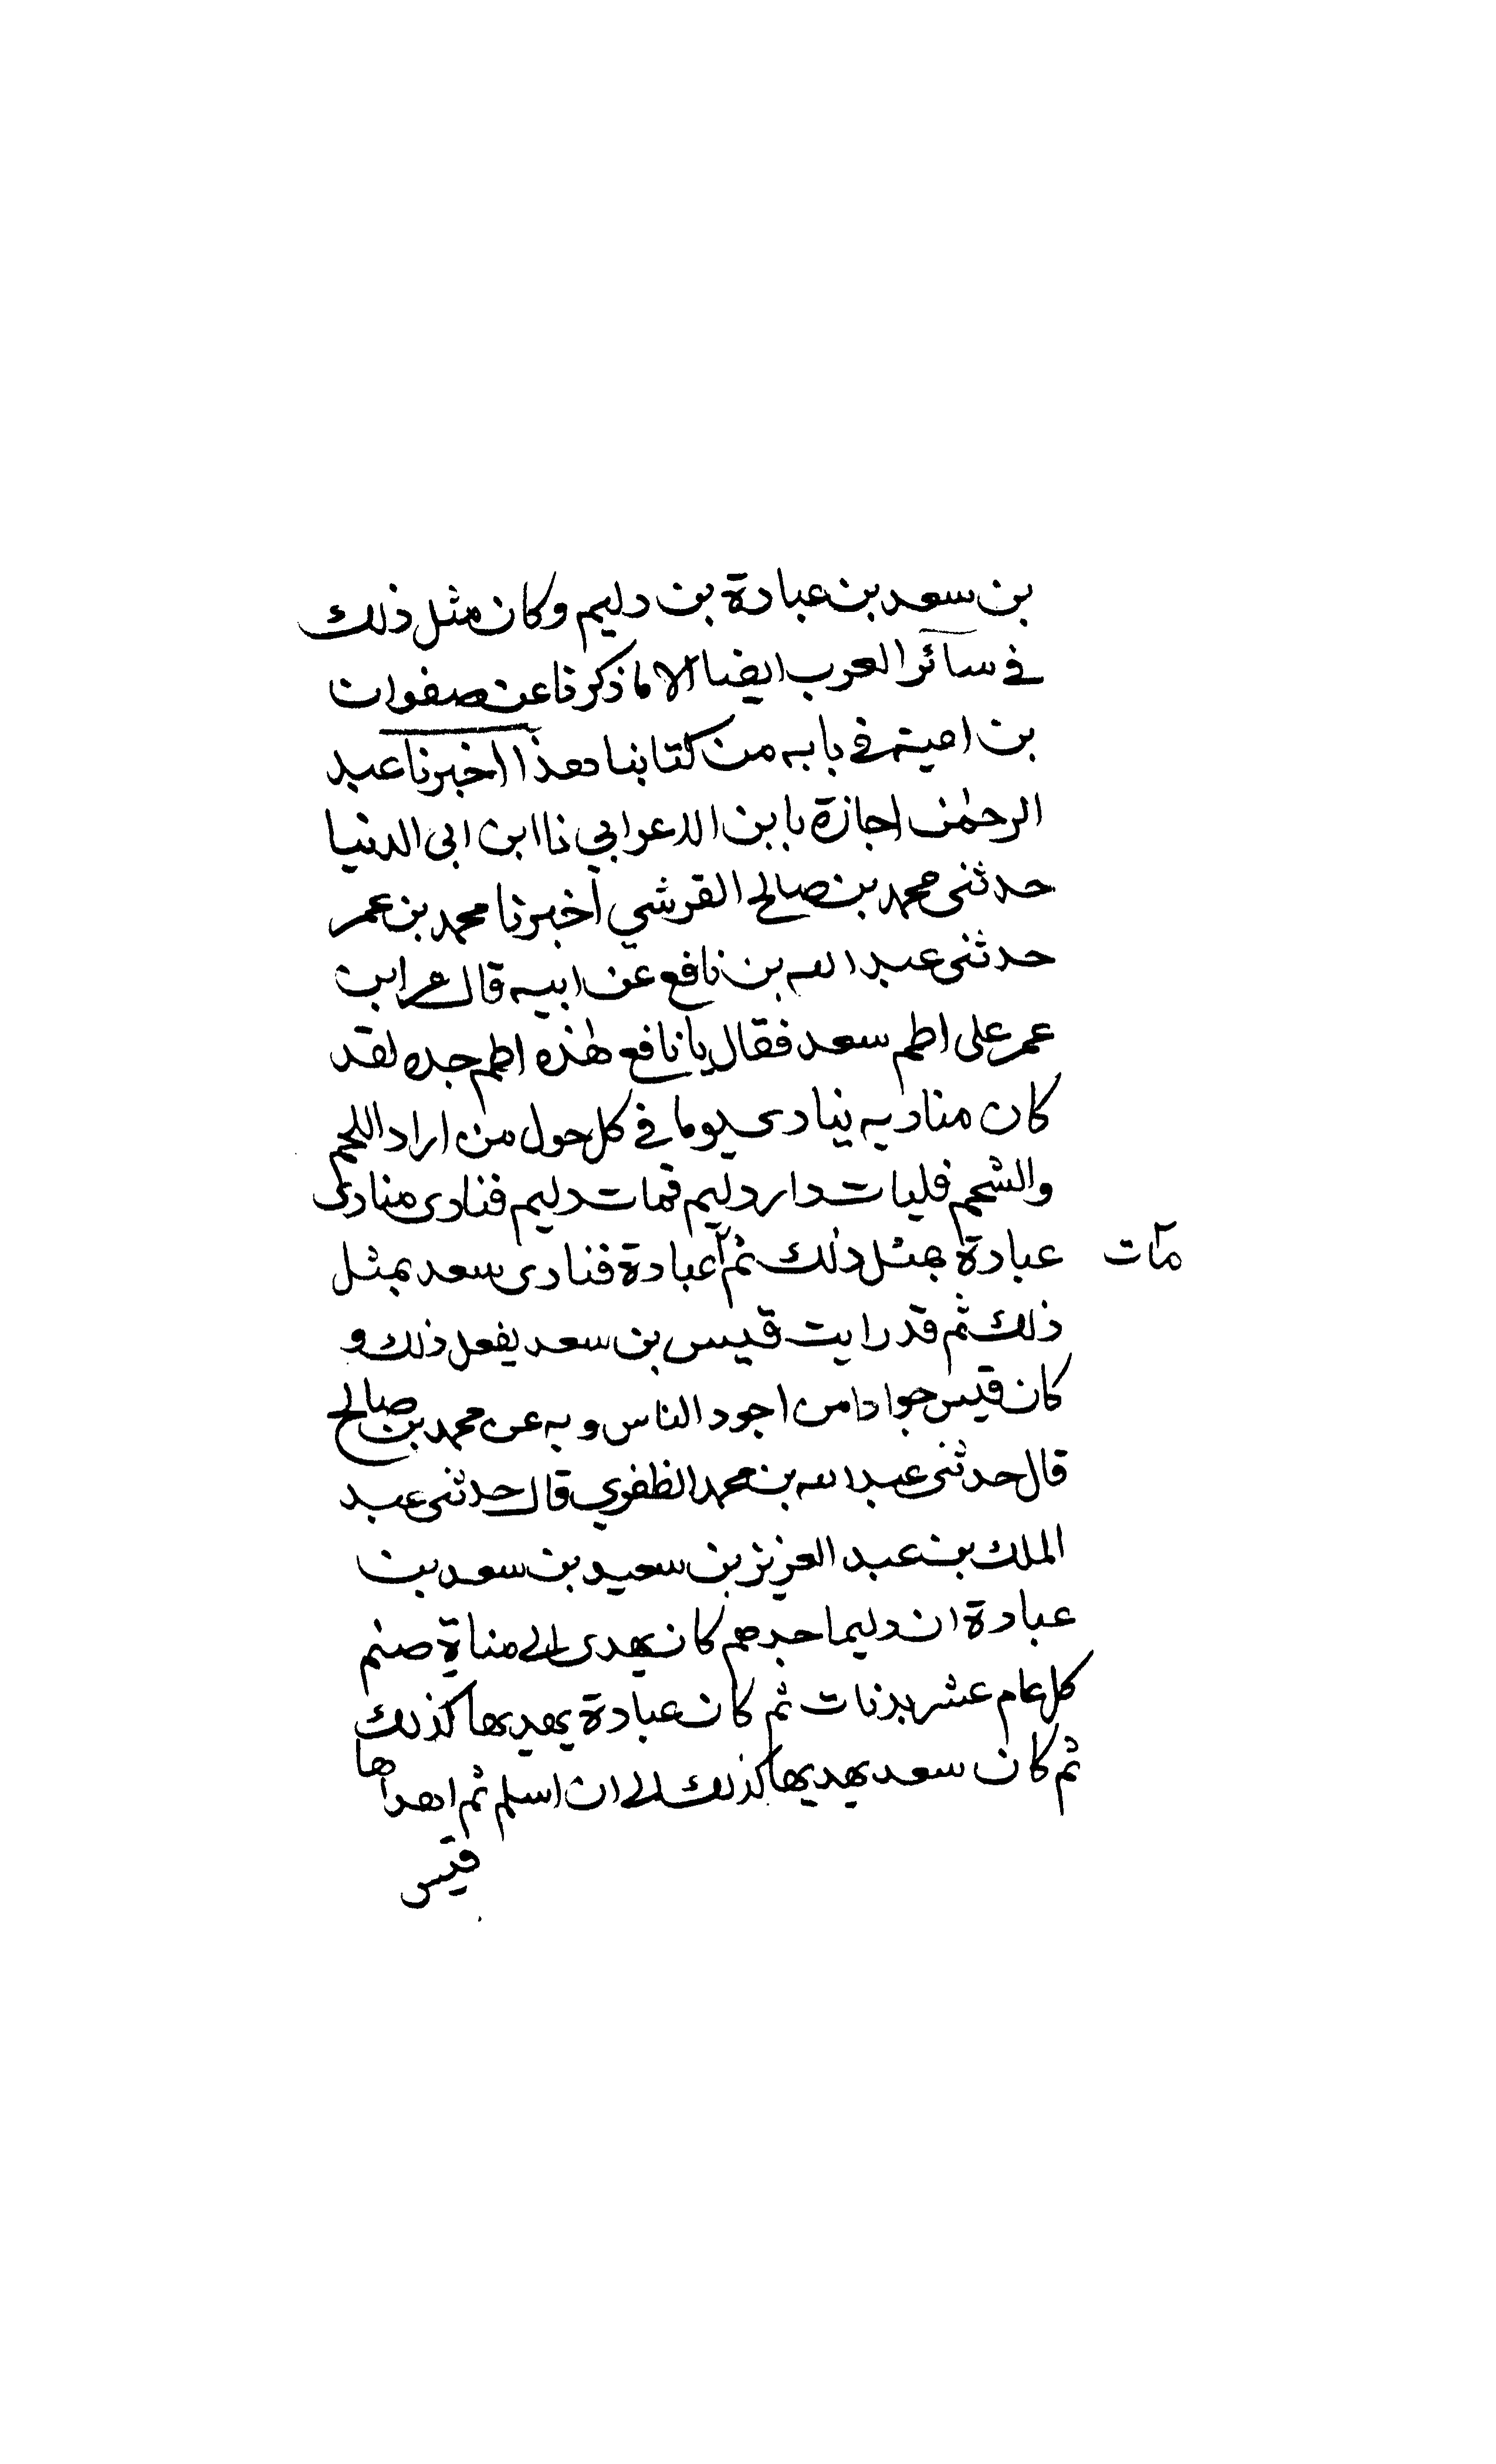 بن سعد بن عبادة بن دليم وكان مثل ذلك
في سآئر العرب ايضا الا ما ذكرنا عن صفوان
بن امية في بابه من كتابنا هذا اخبرنا عبد
الرحمٰن اجازة با بن الاعرابي نا ابن ابى الدنيا
حدثنى محمد بن صالح القرشي اخبرنا محمد بن عمر
حدثنى عبد الله بن نافع عن ابيه قال مر ابن
عمر على اطم سعد فقال يا نافع هٰذه اطم جده لقد
كان مناديه ينادى يوما في كل حول من اراد اللحم
والشحم فليات دار دليم فمات دليم فنادى منادى
عبادة بمثل ذلك ثم عبادة فنادى سعد بمثل
مآت
ذلك ثم قد رايت قيس بن سعد يفعل ذلك و
كان قيس جوادا من اجود الناس وبه عن محمد بن صالح
قال حدثنى عبد الله بن محمد الظفري قال حدثنى عبد
الملك بن عبد العزيز بن سعيد بن سعد بن
عبادة ان دليما جدهم كان يهدى الى مناة صنم
كل عام عشر بدنات ثم كان عبادة يهديها كذلك
ثم كان سعد يهديها كذلك الى ان اسلم ثم اهداها
قيس